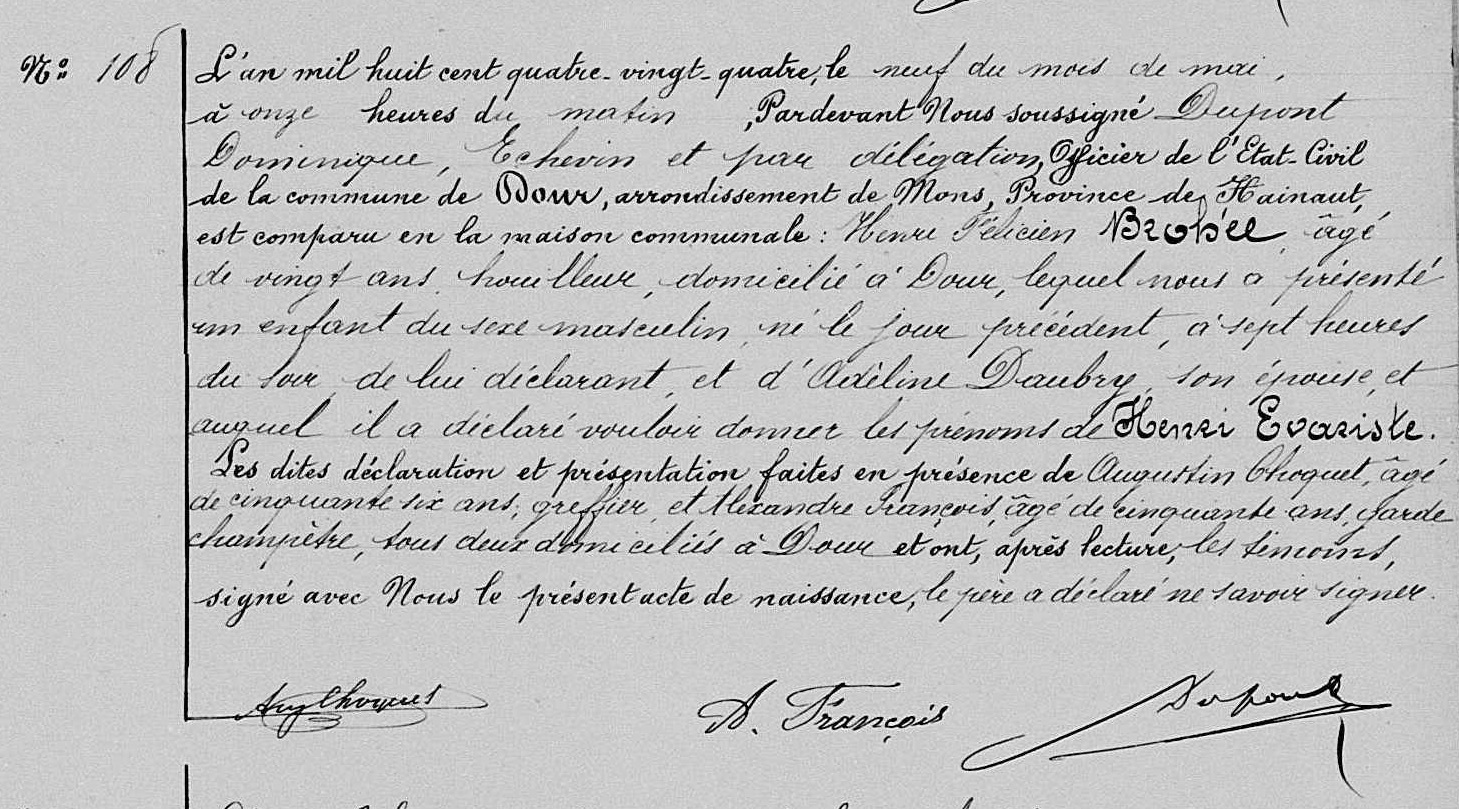 N° 108
L'an mil huit cent quatre-vingt-quatre, le neuf du mois de mai,
à onze heures du matin, Pardevant Nous soussigné Dupont
Dominique, Echevin et par délégation, Officier de l'Etat-Civil
de la commune de Dour, arrondissement de Mons, Province de Hainaut,
est comparu en la maison communale : Henri Félicien Brohée, âgé
de vingt ans, houilleur, domicilié à Dour, lequel nous a présenté
un enfant du sexe masculin, né le jour précédent, à sept heures
du soir, de lui déclarant, et d'Adèline Daubry, son épouse, et
auquel il a déclaré vouloir donner les prénoms de Henri Evariste.
Les dites déclaration et présentation faites en présence de Augustin Choquet, âgé
de cinquante six ans, greffier, et Alexandre François, âgé de cinquante ans, garde
champètre, tous deux domiciliés à Dour et ont, après lecture, les témoins,
signé avec Nous le présent acte de naissance, le père a déclaré ne savoir signer.
Aug Choquet A. François Dupont